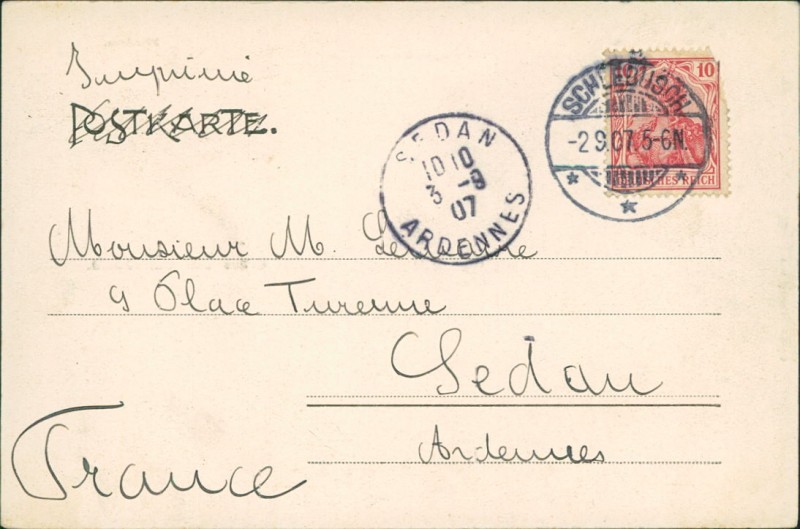 Imprimé
POSTKARTE.
SEDAN
10 10
3 -9
07
ARDENNES
-2.9.07.5-6N.
10
DEUTSCHES REICH
Monsieur M.
9 Place Turenne
Sedan
Ardennes
France